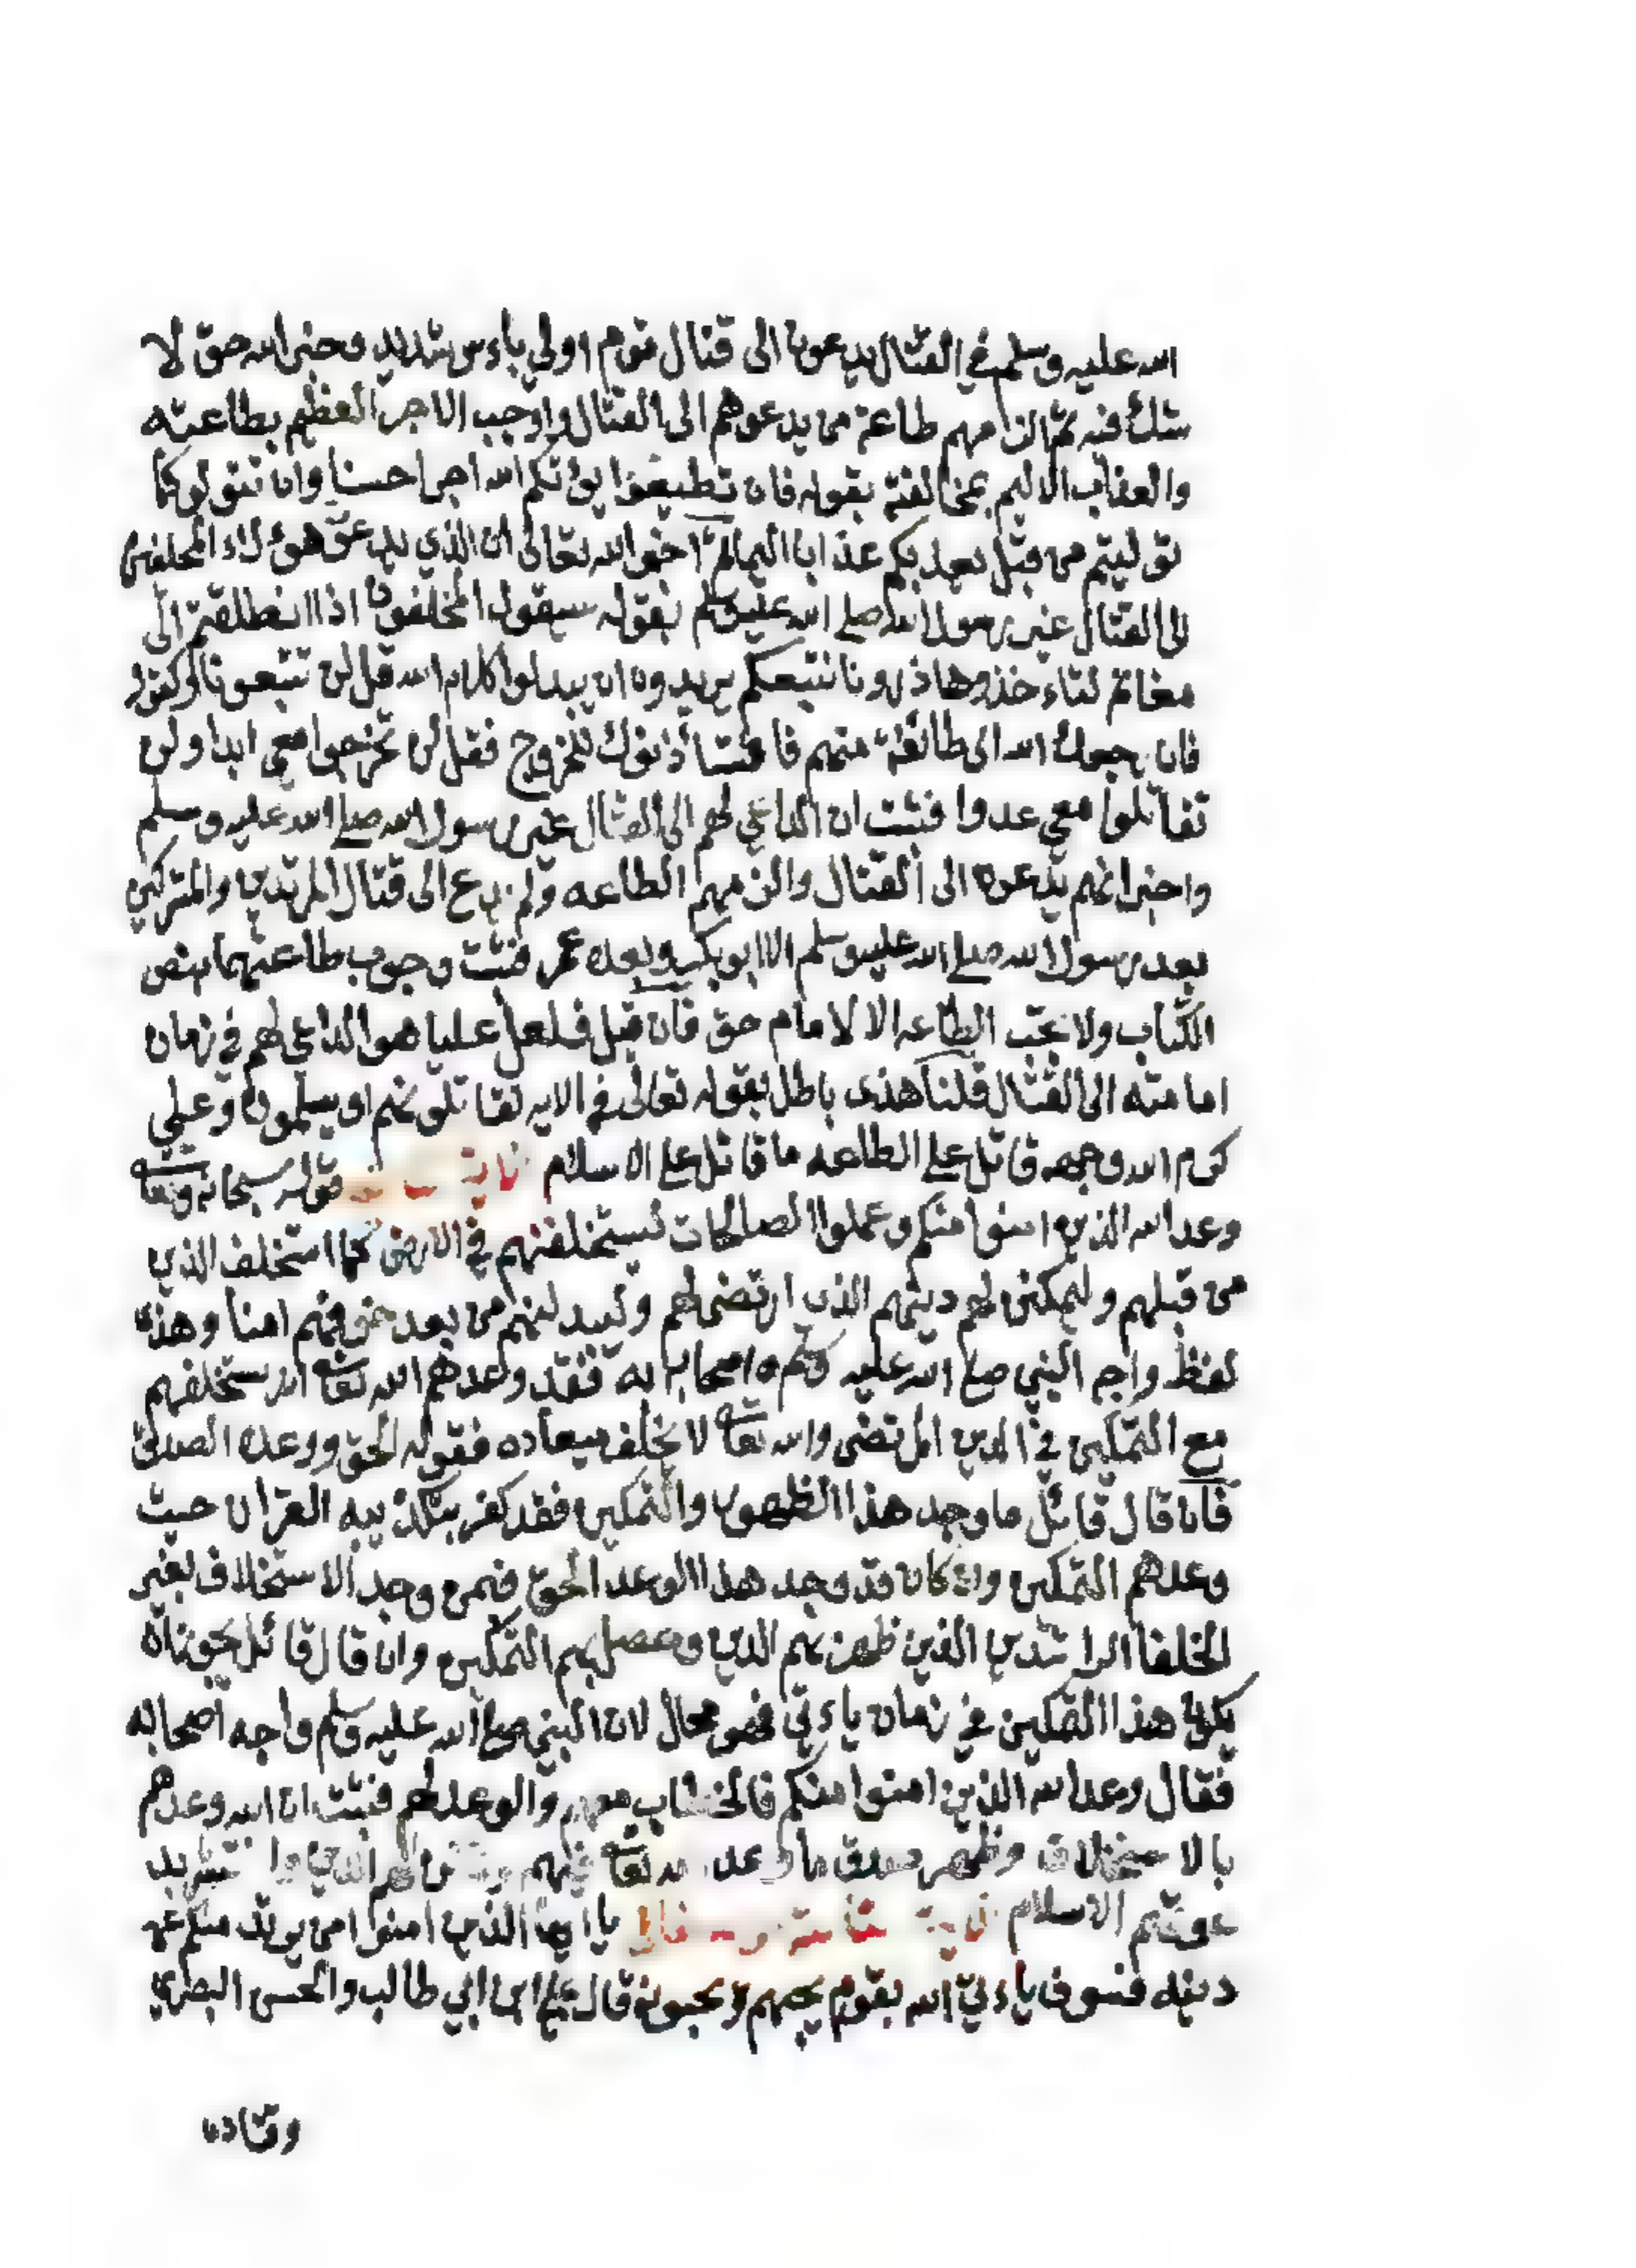 الله عليه وسلم في القتال يدعونا الى قتال قوم اولي باءس شديد وخبر الله حق لا
شك فيه ثم الزامهم طاعة من يدعوهم الى القتال واوجب الاجر العظيم بطاعته
والعذاب الاليم بمخالفته بقوله فان تطيعوا يؤتكم الله اجرا حسنا وان تتولو كما
توليتم من قبل يعذبكم عذابا اليما ثم اخبر الله تعالى ان الذي يدعو هؤلاء المخلفين
الى القتال غير رسول الله صلى الله عليه وسلم بقوله سيقول المخلفون اذا انطلقتم الى
مغانم لتاءخذوها ذرونا نتبعكم يريدون ان يبدلوا كلام الله قل لن تتبعونا وكقوله
فان رجعك الله الى طائفة منهم فاستأذنوك للخروج فقل لن تخرجوا معي ابدا ولن
تقاتلوا معي عدوا فثبت ان الداعي لهم الى القتال غير رسول الله صلى الله عليه وسلم
واخبر انهم يدعون الى القتال والزمهم الطاعه ولم يدع الى قتال المرتدين والمشركين
بعد رسول الله صلى الله عليه وسلم الا ابو بكر وبعده عمر فثبت وجوب طاعتهما بنص
الكتاب ولا تجب الطاعه الا لامام حق فان قيل فلعل عليا هو الداعي لهم في زمان
امامته الى القتال قلنا هذى باطل بقوله تعالى في الايه تقاتلونهم او يسلمون وعلي
كرم الله وجهه قاتل على الطاعه ما قاتل على الاسلام قوله سبحانه وتعا
وعد الله الذين امنوا منكم وعملوا الصالحات ليستخلفنهم في الارض كما استخلف الذين
من قبلهم وليمكنن لهم دينهم الذي ارتضى لهم وليبدلنهم من بعد خوفهم امنا وهذا
لفظ واجه النبي صلى الله عليه وسلم واصحابه به فقد وعدهم الله تعا انه يستخلفهم
مع التمكين في الدين المرتضى والله تعا لا يخلف ميعاده فقوله الحق ووعده الصدق
فان قال قائل ما وجد هذا الظهور والتمكين فقد كفر بتكذيبه القران حيث
وعدهم التمكين وان كان قد وجد هذا الوعد الحق فمن وجد الاستخلاف لغير
الخلفا الراشدين الذين ظهر بهم الدين وحصل بهم التمكين وان قال قائل يجوز ان
يكون هذا التمكين في زمان ياءتي فهو محال لان النبي صلى الله عليه وسلم واجه اصحابه
فقال وعد الله الذين امنوا منكم فالخطاب معهم والوعد لهم فثبت ان الله وعدهم
بالاستخلاف وظهر صدق ما وعد الله تعا فيهم لهم الدين
الاسلام يا ايها الذين امنوا من يرتد منكم عن
دينه فسوف ياءتي الله بقوم يحبهم ويحبونه قال علي ابن ابي طالب والحسن البصري
وقتاده